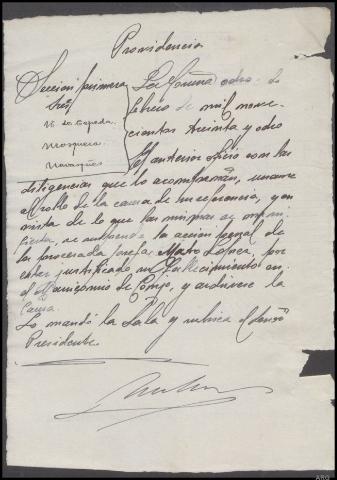 Providencia
Sección primera
Sres
V. de Cepeda
Mosquera
Navarques
La Coruña ocho de
febrero de mil nove-
cientos treinta y ocho
El anterior oficio con las
diligencias que lo acompañan, unanse
al rollo de la causa de su referencia, y en
vista de lo que las mismas se mani-
fiesta, se suspende la acción penal de
la procesada Josefa Mato Lopez, por
estar justificado su fallecimiento en
el Manicomio de Conjo, y archivese la
causa.
Lo mandó la Sala y rubrica el
Presidente.
ARG